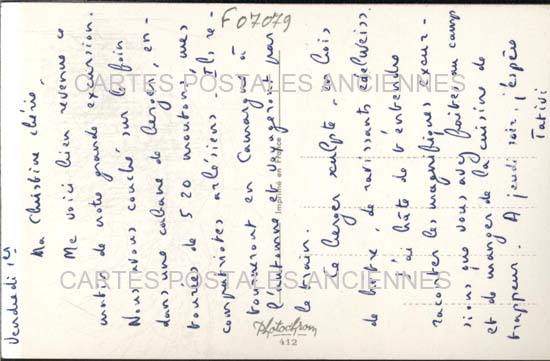 F07079
Vendredi 1er
Ma Christine chérie,
Me voici bien revenue ce
matin de notre grande excursion.
Nous avons couché sur le foin
dans une cabane de berger, en-
tourées de 520 moutons, mes
compatriotes arlésiens - Ils re-
tourneront en Camargue à
l'automne et voyageront par
le train.
Le berger sculpte, en bois
de hêtre, de ravissants edelweiss.
J'ai hâte de t'entendre
raconter les magnifiques excur-
sions que vous avez faites, au camp
et de manger de la cuisine de
trappeur. A jeudi soir, j'espère
Tativi
Imprimé en France
Photochrom
412
CARTES POSTALES ANCIENNES
CARTES POSTALES ANCIENNES